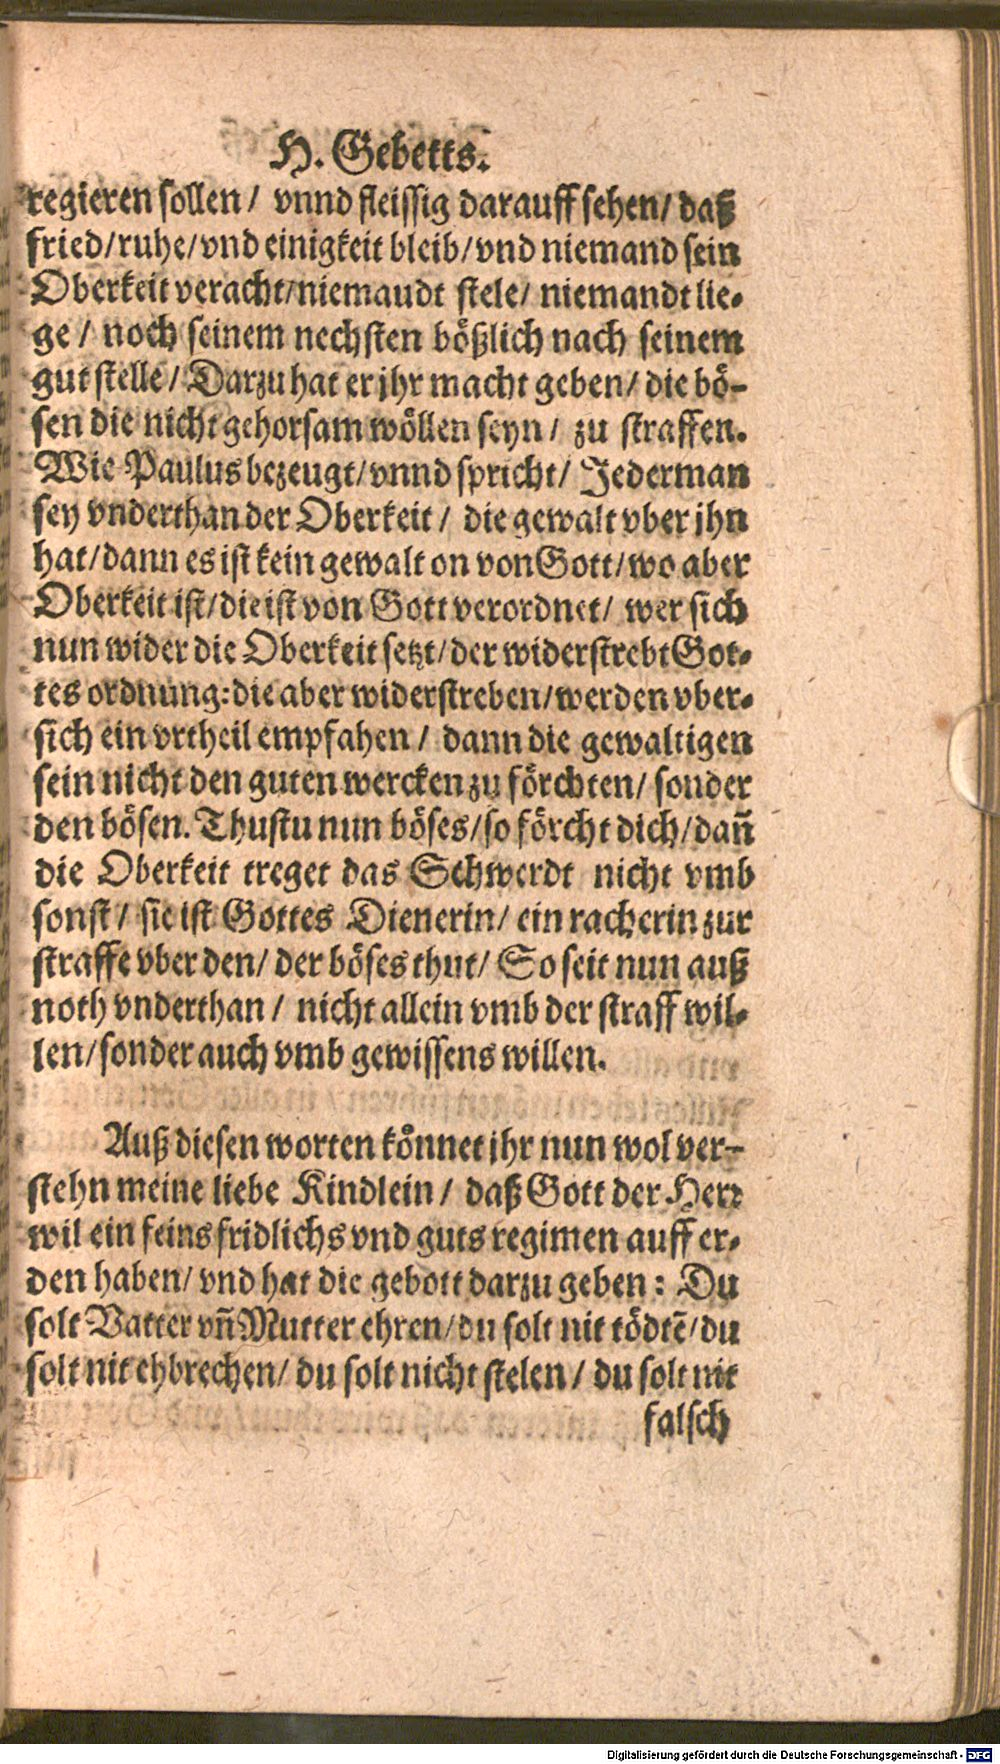 H. Gebetts.
regieren sollen / vnnd fleissig darauff sehen / daß
fried / ruhe / vnd einigkeit bleib / vnd niemand sein
Oberkeit veracht / niemaudt stele / niemandt lie-
ge / noch seinem nechsten bößlich nach seinem
gut stelle / Darzu hat er jhr macht geben / die bö-
sen die nicht gehorsam wöllen seyn / zu straffen.
Wie Paulus bezeugt / vnnd spricht / Jederman
sey vnderthan der Oberkeit / die gewalt vber jhn
hat / dann es ist kein gewalt on von Gott / wo aber
Oberkeit ist / die ist von Gott verordnet / wer sich
nun wider die Oberkeit setzt / der widerstrebt Got-
tes ordnung: die aber widerstreben / werden vber-
sich ein vrtheil empfahen / dann die gewaltigen
sein nicht den guten wercken zu förchten / sonder
den bösen. Thustu nun böses / so förcht dich / dañ
die Oberkeit treget das Schwerdt nicht vmb
sonst / sie ist Gottes Dienerin / ein racherin zur
straffe vber den / der böses thut / So seit nun auß
noth vnderthan / nicht allein vmb der straff wil-
len / sonder auch vmb gewissens willen.
Auß diesen worten könnet jhr nun wol ver-
stehn meine liebe Kindlein / daß Gott der Herr
wil ein feins fridlichs vnd guts regimen auff er-
den haben / vnd hat die gebott darzu geben: Du
solt Vatter vñ Mutter ehren / du solt nit tödtē / du
solt nit ehbrechen / du solt nicht stelen / du solt nit
falsch
Digitalisierung gefördert durch die Deutsche Forschungsgemeinschaft - DFG